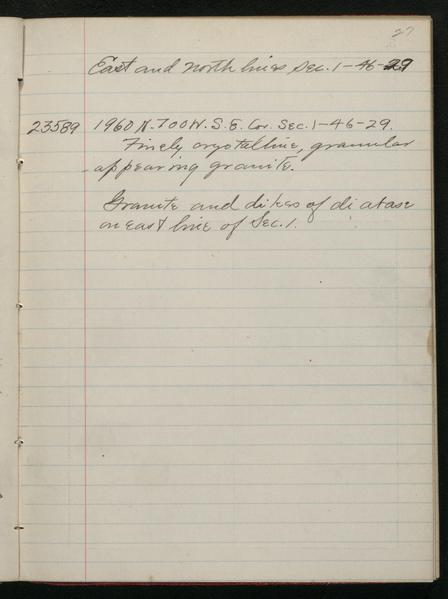 27
East and north lines Sec. 1-46-29
23589 1960 N. 700 W. S.E. Cor. Sec. 1-46-29.
Finely crystalline, granular
appearing granite.
Granite and dikes of diabase
on east line of Sec. 1.